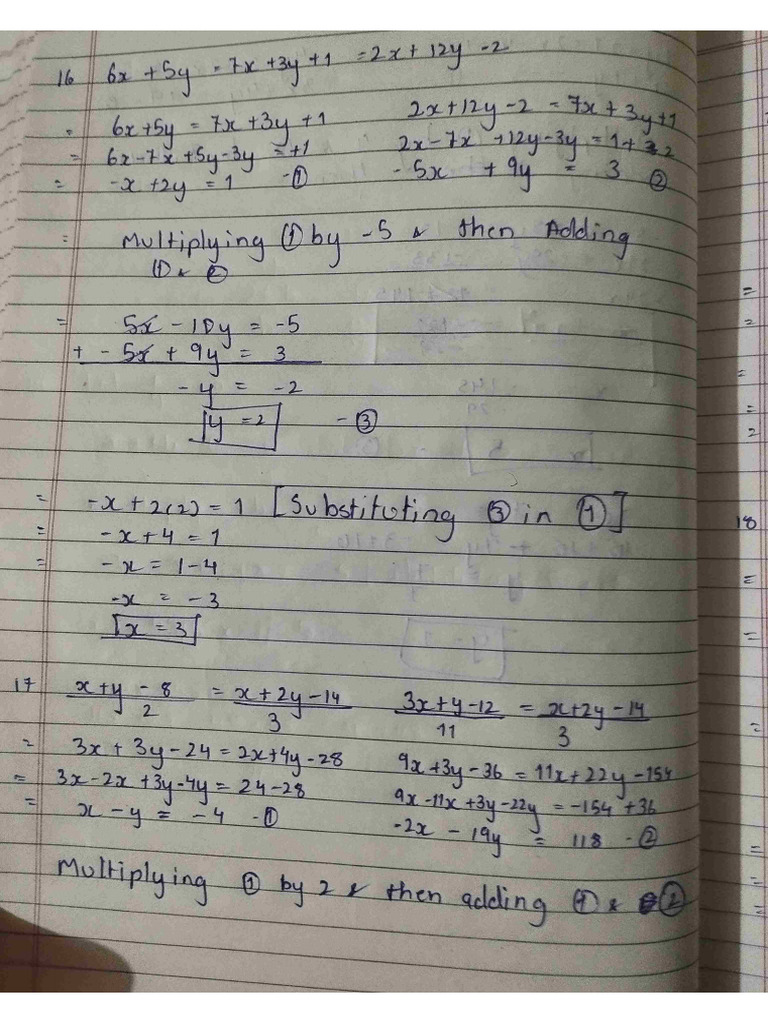 16 6x + 5y = 7x + 3y + 1 = 2x + 12y - 2
= 6x + 5y = 7x + 3y + 1 2x + 12y - 2 = 7x + 3y + 1
= 6x - 7x + 5y - 3y = +1 2x - 7x + 12y - 3y = 1 + 2
= -x + 2y = 1 - ① - 5x + 9y = 3 ②
= Multiplying ① by -5 & then Adding
① & ②
= 5x - 10y = -5
+ - 5x + 9y = 3
- y = -2
y = 2 - ③
= -x + 2(2) = 1 [Substituting ③ in ①]
= -x + 4 = 1
= -x = 1 - 4
-x = - 3
x = 3
17 x + y - 8 / 2 = x + 2y - 14 / 3 3x + y - 12 / 11 = x + 2y - 14 / 3
= 3x + 3y - 24 = 2x + 4y - 28 9x + 3y - 36 = 11x + 22y - 154
= 3x - 2x + 3y - 4y = 24 - 28 9x - 11x + 3y - 22y = -154 + 36
= x - y = -4 - ① -2x - 19y = 118 - ②
Multiplying ① by 2 & then adding ① & ②
18